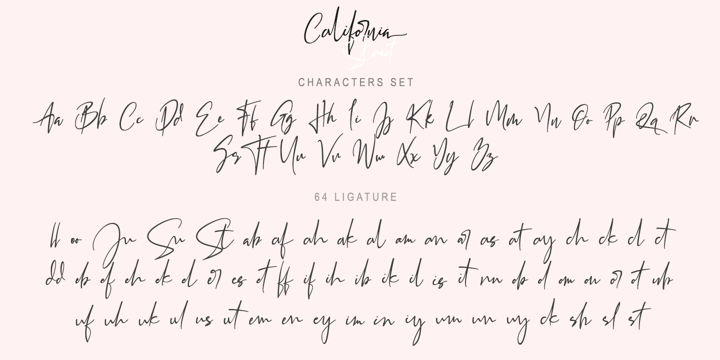 California
Stout
CHARACTERS SET
Aa Bb Cc Dd Ee Ff Gg Hh Ii Jj Kk Ll Mm Nn Oo Pp Qq Rr
Ss Tt Uu Vv Ww Xx Yy Zz
64 LIGATURE
ll oo Ju Su St ab af ah ak al am an ar as at ay ch ck cl ct
dd eb ef eh ek el er es et ff if ih ib ik il is it nn ob ol om on or ot ub
uf uh uk ul us ut em en ey im in iy um un uy ck sh sl st